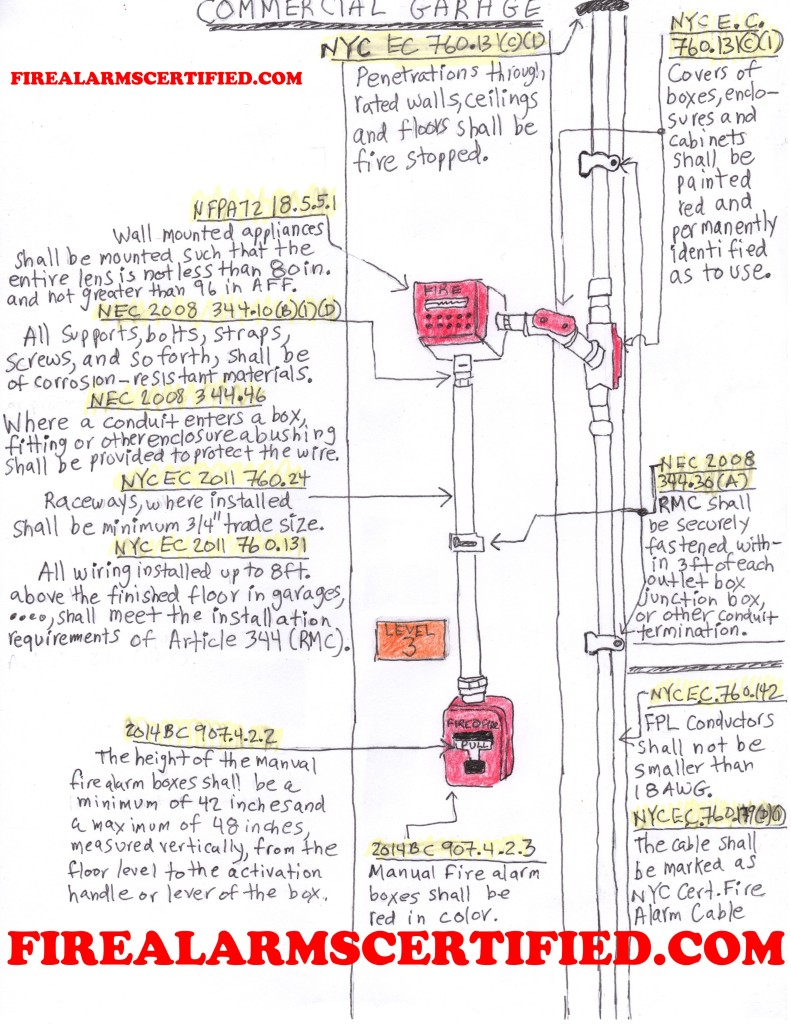 COMMERCIAL GARAGE
FIREALARMSCERTIFIED.COM
NYC EC 760.131(C)(1)
Penetrations through
rated walls, ceilings
and floors shall be
fire stopped.
NYC E.C.
760.131(C)(1)
Covers of
boxes, enclo-
sures and
cabinets
shall be
painted
red and
permanently
identified
as to use.
NFPA72 18.5.5.1
Wall mounted appliances
shall be mounted such that the
entire lens is not less than 80 in.
and not greater than 96 in AFF.
NEC 2008 344.10(B)(1)(D)
All supports, bolts, straps,
screws, and so forth, shall be
of corrosion-resistant materials.
NEC 2008 344.46
Where a conduit enters a box,
fitting or other enclosure a bushing
shall be provided to protect the wire.
NYC EC 2011 760.24
Raceways, where installed
shall be minimum 3/4" trade size.
NYC EC 2011 760.131
All wiring installed up to 8ft.
above the finished floor in garages,
...., shall meet the installation
requirements of Article 344 (RMC).
FIRE
NEC 2008
344.30(A)
RMC shall
be securely
fastened with-
in 3ft of each
outlet box
junction box,
or other conduit
termination.
LEVEL
3
FIRE FIRE
PULL
2014 BC 907.4.2.2
The height of the manual
fire alarm boxes shall be a
minimum of 42 inches and
a maximum of 48 inches,
measured vertically, from the
floor level to the activation
handle or lever of the box.
2014 BC 907.4.2.3
Manual fire alarm
boxes shall be
red in color.
NYC EC.760.142
FPL Conductors
shall not be
smaller than
18 AWG.
NYC EC.760.179(D)(1)
The cable shall
be marked as
NYC Cert. Fire
Alarm Cable
FIREALARMSCERTIFIED.COM